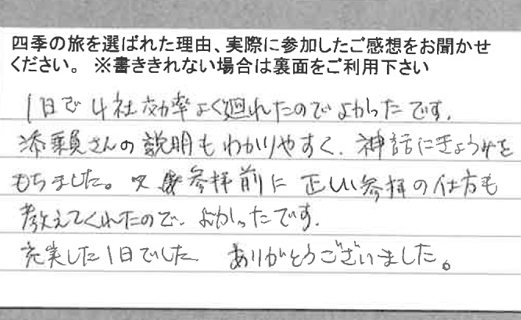 四季の旅を選ばれた理由、実際に参加したご感想をお聞かせ
ください。 ※書ききれない場合は裏面をご利用下さい
1日で4社効率よく廻れたのでよかったです。
添乗さんの説明もわかりやすく、神話にきょうみを
もちました。又参拝前に正しい参拝の仕方も
教えてくれたので、よかったです。
充実した1日でした ありがとうございました。